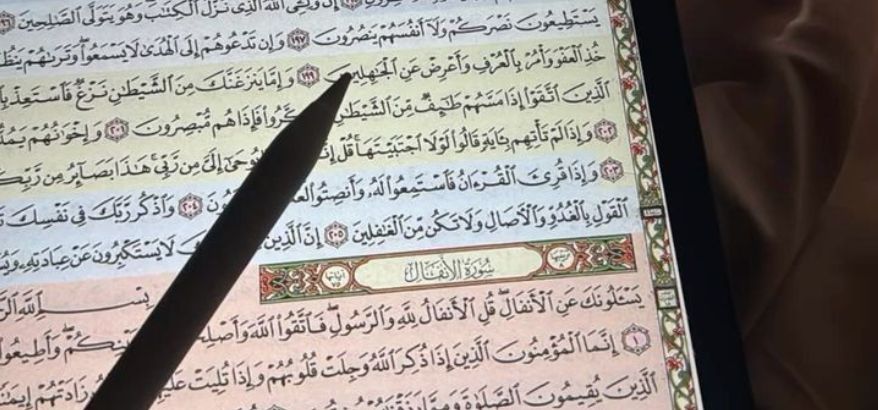 إِنَّ وَلِـِّىَ ٱللَّهُ ٱلَّذِى نَزَّلَ ٱلْكِتَٰبَ وَهُوَ يَتَوَلَّى ٱلصَّٰلِحِينَ ١٩٦
يَسْتَطِيعُونَ نَصْرَكُمْ وَلَآ أَنفُسَهُمْ يَنصُرُونَ ١٩٧ وَإِن تَدْعُوهُمْ إِلَى ٱلْهُدَىٰ لَا يَسْمَعُوا۟ وَتَرَىٰهُمْ
خُذِ ٱلْعَفْوَ وَأْمُرْ بِٱلْعُرْفِ وَأَعْرِضْ عَنِ ٱلْجَٰهِلِينَ ١٩٩ وَإِمَّا يَنزَغَنَّكَ مِنَ ٱلشَّيْطَٰنِ نَزْغٌ فَٱسْتَعِذْ
ٱلَّذِينَ ٱتَّقَوْا۟ إِذَا مَسَّهُمْ طَٰٓئِفٌ مِّنَ ٱلشَّيْطَٰنِ فَإِذَا هُم مُّبْصِرُونَ ٢٠١ وَإِخْوَٰنُهُمْ
٢٠٢ وَإِذَا لَمْ تَأْتِهِم بِـَٔايَةٍ قَالُوا۟ لَوْلَا ٱجْتَبَيْتَهَا قُلْ يُوحَىٰٓ إِلَىَّ مِن رَّبِّى هَٰذَا بَصَآئِرُ مِن رَّبِّكُمْ
٢٠٣ وَإِذَا قُرِئَ ٱلْقُرْءَانُ فَٱسْتَمِعُوا۟ لَهُۥ وَأَنصِتُوا۟ ٢٠٤ وَٱذْكُر رَّبَّكَ فِى نَفْسِكَ
ٱلْقَوْلِ بِٱلْغُدُوِّ وَٱلْءَاصَالِ وَلَا تَكُن مِّنَ ٱلْغَٰفِلِينَ ٢٠٥ إِنَّ ٱلَّذِينَ لَا يَسْتَكْبِرُونَ عَنْ عِبَادَتِهِۦ
سُورَةُ الأَنفَالِ
بِسْمِ ٱللَّهِ
يَسْـَٔلُونَكَ عَنِ ٱلْأَنفَالِ قُلِ ٱلْأَنفَالُ لِلَّهِ وَٱلرَّسُولِ فَٱتَّقُوا۟ ٱللَّهَ وَأَصْلِحُوا۟ بَيْنِكُمْ وَأَطِيعُوا۟
١ إِنَّمَا ٱلْمُؤْمِنُونَ ٱلَّذِينَ إِذَا ذُكِرَ ٱللَّهُ وَجِلَتْ قُلُوبُهُمْ وَإِذَا تُلِيَتْ عَلَيْهِمْ زَادَتْهُمْ
ٱلَّذِينَ يُقِيمُونَ ٱلصَّلَوٰةَ وَمِمَّا رَزَقْنَٰهُمْ